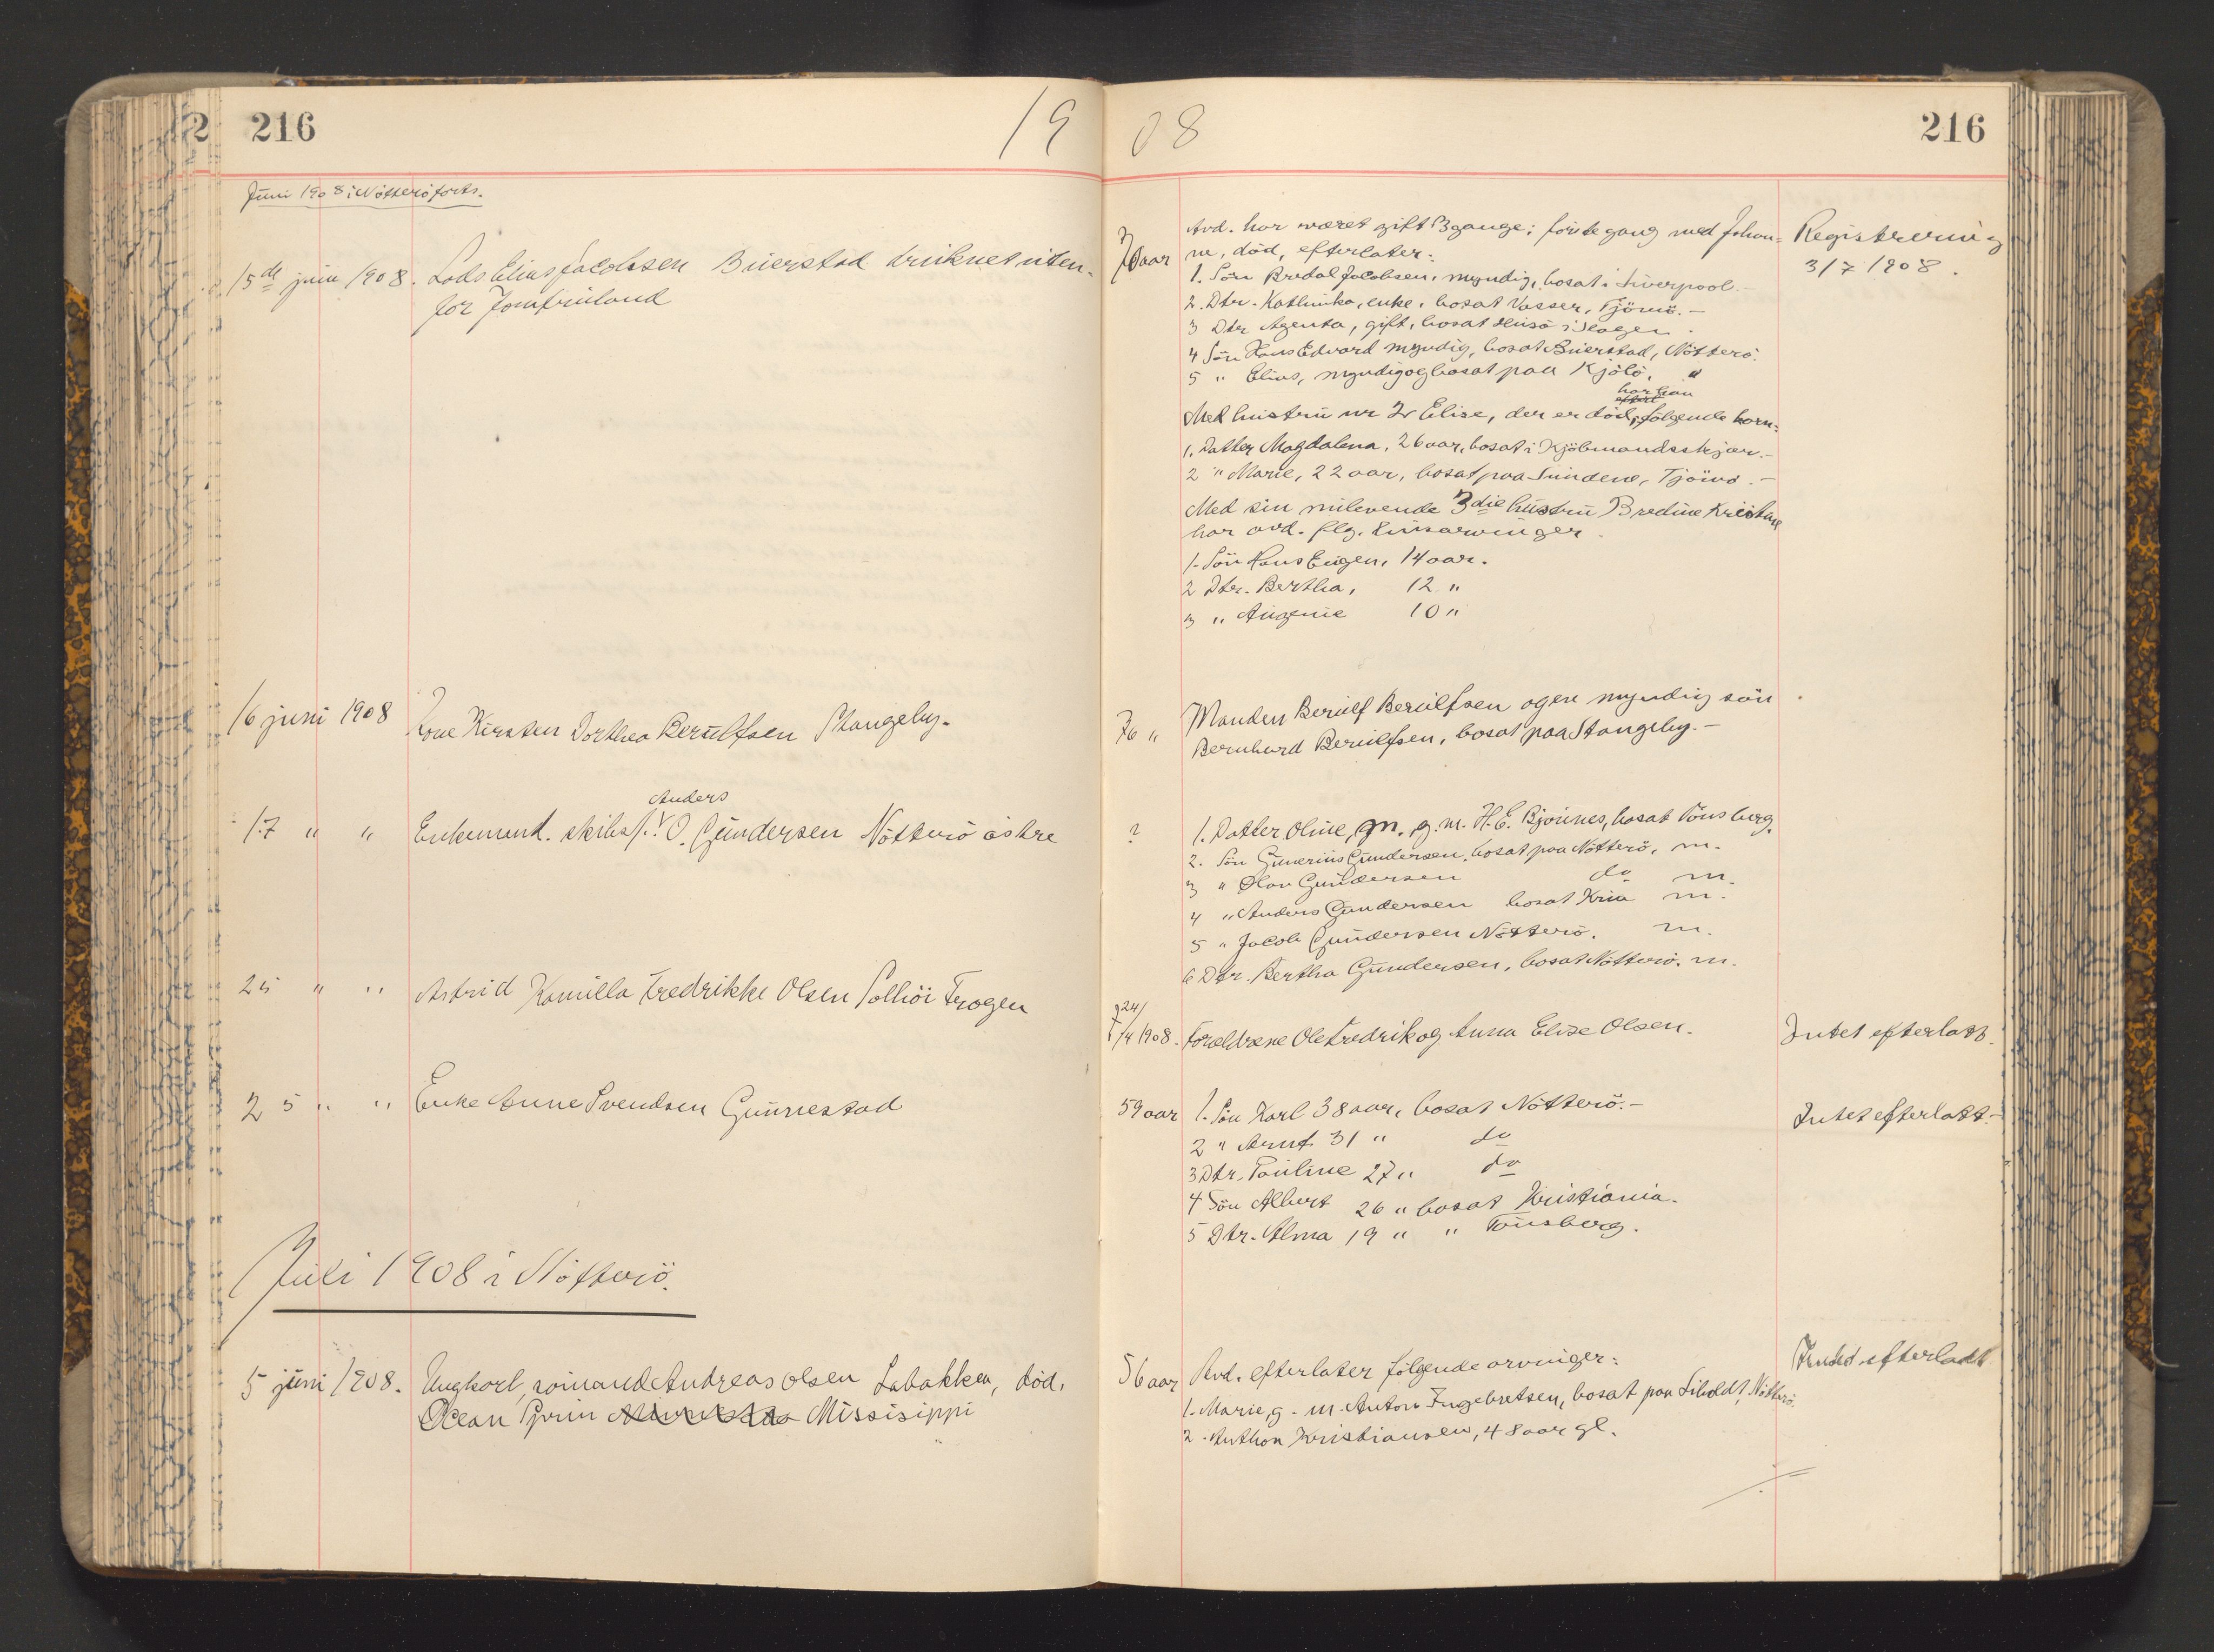 216
19 08
216
Juni 1908 i Nötterö forts.
15de juni 1908. Lods Elias Jacobsen Buerstad druknet uten-
for Jomfruland
70 aar
Avd. har været gift 3 gange; förste gang med Johan-
ne, död, efterlater:
1. Sön Bredal Jacobsen, myndig, bosat i Liverpool.-
2. Dtr. Kathinka, enke, bosat Vasser, Tjömö.-
3 Dtr Agenta, gift, bosat Husö i Slagen.
4 Sön Hans Edvard myndig, bosat Buerstad, Nötterö.
5 " Elias, myndig og bosat paa Kjölö, "
har han
Med hustru nr 2 Elise, der er död, følgende born:
1. Datter Magdalena, 26 aar, bosat i Kjöbmandsskjær.-
2 " Marie, 22 aar, bosat paa Sundene, Tjömö.-
Med sin nulevende 3die hustru Bredine Kristine
har avd. flg. livsarvinger
1. Sön Hans Eugen, 14 aar.
2 Dtr. Bertha, 12 "
3 " Augenie 10 "
Registrering
3/7 1908.
16 juni 1908 Kone Kirsten Dorthea Berulfsen Stangeby.
76 "
Manden Berulf Berulfsen og en myndig sön
Bernhard Berulfsen, bosat paa Stangeby.-
17 " " Enkemand. skibsf. Anders O. Gundersen Nötterö östre
?
1. Datter Oline, m. g. m. H. E. Bjönnes, bosat Tönsberg.
2. Sön Gunerius Gundersen, bosat paa Nötterö, m.
3 " Olav Gundersen do m.
4 " Anders Gundersen bosat Kria m.
5 " Jacob Gundersen Nötterö. m.
6 Dtr. Bertha Gundersen, bosat Nötterö. m.
25 " " Astrid Kamilla Fredrikke Olsen Solhöi Trogen
24/
/4 1908.
Forældrene Ole Fredrik og Anna Elise Olsen.
Intet efterlatt.
25 " " Enke Anne Svendsen Gunnestad
59 aar
1. Sön Karl 38 aar, bosat Nötterö.-
2 " Arnt 31 " do
3 Dtr. Pauline 27 " do
4 Sön Albert 26 " bosat Kristiania.
5 Dtr. Alma 19 " " Tönsberg.
Intet efterlatt.-
Juli 1908 i Nötterö.
5 juni 1908. Ungkarl, sömand Andreas Olsen Labakken, död,
Ocean Sprin Missisippi
56 aar
Avd. efterlater følgende arvinger:
1. Marie, g. m. Anton Ingebretsen, bosat paa Nötterö.
2. Anthon Kristiansen, 48 aar gl.
Intet efterladt